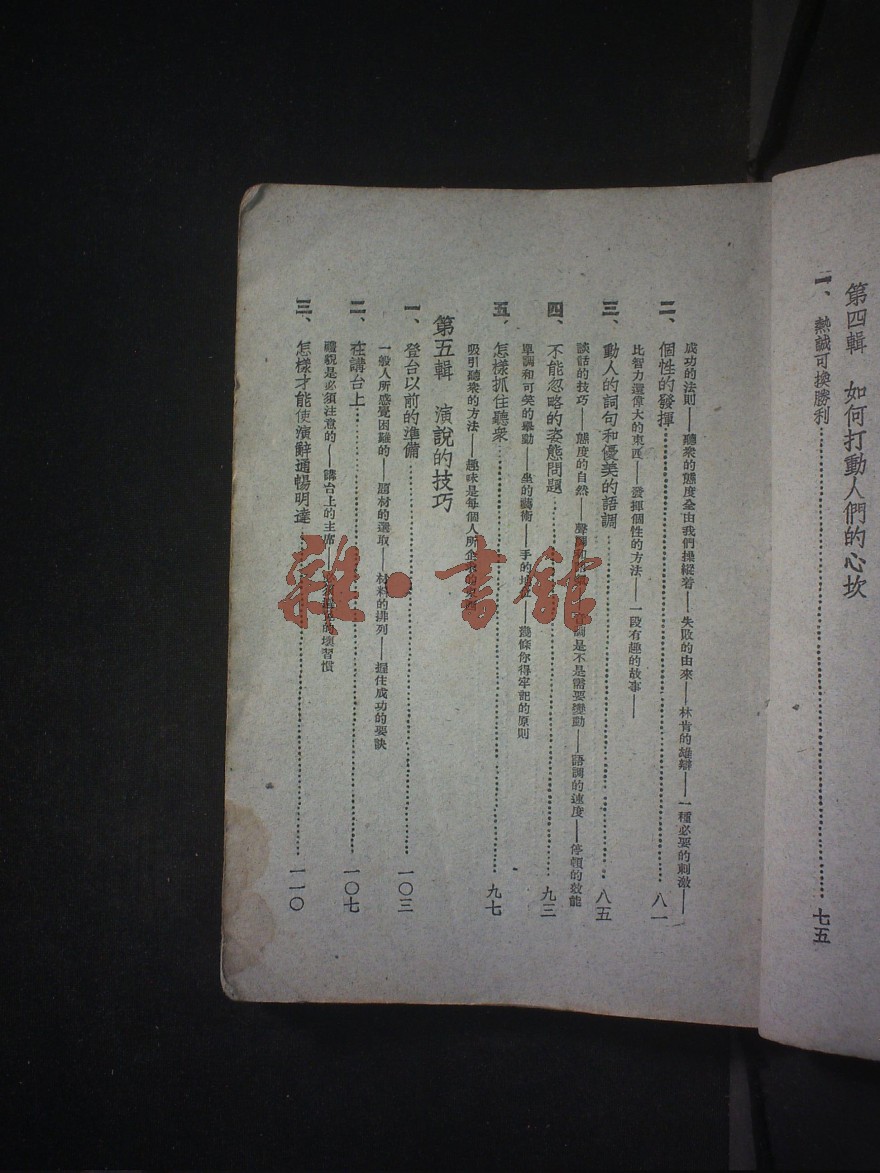 第四輯 如何打動人們的心坎
一、熱誠可換勝利……七五
成功的法則——聽衆的態度全由我們操縱着——失敗的由來——林肯的雄辯——一種必要的刺激——
二、個性的發揮……八一
比智力還偉大的東西——發揮個性的方法——一段有趣的故事——
三、動人的詞句和優美的語調……八五
談話的技巧——態度的自然——聲調和　調是不是需要變動——語調的速度——停頓的效能
四、不能忽略的姿態問題……九三
單調和可笑的舉動——坐的藝術——手的地位——幾條你得牢記的原則
五、怎樣抓住聽衆……九七
吸引聽衆的方法——趣味是每個人所企求的東西
第五輯 演說的技巧
一、登台以前的準備……一〇三
一般人所感覺困難的——題材的選取——材料的排列——握住成功的要訣
二、在講台上……一〇七
禮貌是必須注意的——講台上的主席——的壞習慣
三、怎樣才能使演辭通暢明達……一一〇
雜·書舘